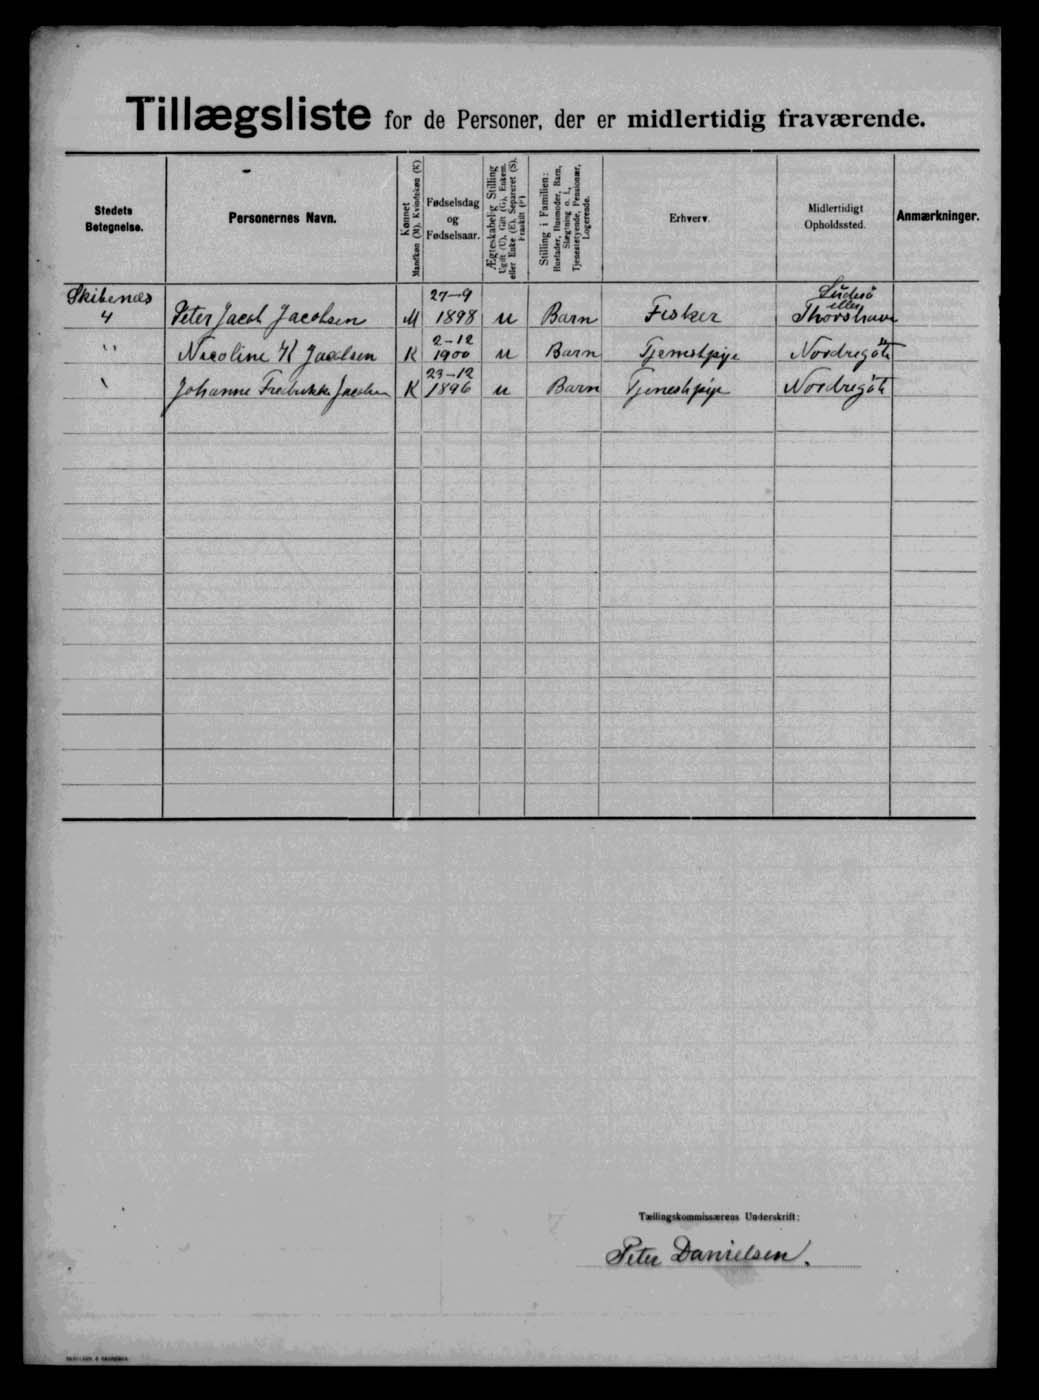 Tillægsliste for de Personer, der er midlertidig fraværende.
Stedets Betegnelse.
Personernes Navn.
Kønnet
Mandkøn (M), Kvindekøn (K)
Fødselsdag og Fødselsaar.
Ægteskabelig Stilling
Ugift (U), Gift (G), Enkem.
eller Enke (E), Separeret (S),
Fraskilt (F)
Stilling i Familien:
Husfader, Husmoder, Barn,
Slægtning o. l.,
Tjenestetyende, Pensionær,
Logerende.
Erhverv.
Midlertidigt Opholdssted.
Anmærkninger.
Skibenæs 4 Peter Jacob Jacobsen M 27-9 1898 u Barn Fisker eller Thorshavn
" Nicoline K Jacobsen K 2-12 1900 u Barn Tjenestpige Nordregöte
" Johanne Fredrikke Jacobsen K 23-12 1896 u Barn Tjenestpige Nordregöte
Tællingskommissærens Underskrift:
Peter Danielsen.